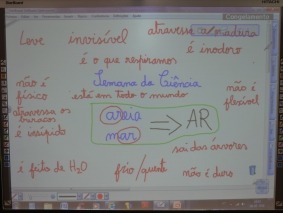 Leve invisível atravessa armadura
é inodoro
é o que respiramos
não é físico
Semana da Ciência
está em todo o mundo
não é flexível
atravessa os buracos
é insípido
areia
mar
AR
sai das árvores
é feito de H2O
frio/quente
não é duro